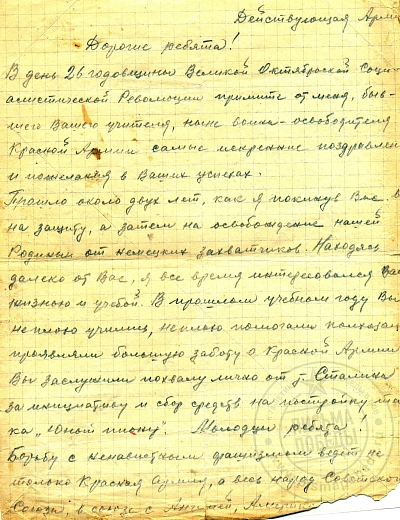 Действующая Арми
Дорогие ребята!
В день 26 годовщины Великой Октябрьской Социа
листической Революции примите от меня, быв-
шего Вашего учителя, ныне воина-освободителя
Красной Армии самые искренние поздравлен
и пожелания в Ваших успехах.
Прошло около двух лет, как я покинув Вас, в
на защиту, а затем на освобождение нашей
Родины от немецких захватчиков. Находясь
далеко от Вас, я все время интересовался Ва
жизнью и учебой. В прошлом учебном году Вы
неплохо учились, неплохо помогали колхозам
проявляли большую заботу о Красной Армии
Вы заслужили похвалу лично от т. Сталина
за инициативу и сбор средств на постройку та
ка „Юный пионер". Молодцы ребята!
Борьбу с ненавистным фашизмом ведет не
только Красная Армия, а весь народ Советског
Союза, в союзе с Англией, Америк
ПИСЬМА
ПОБЕДЫ